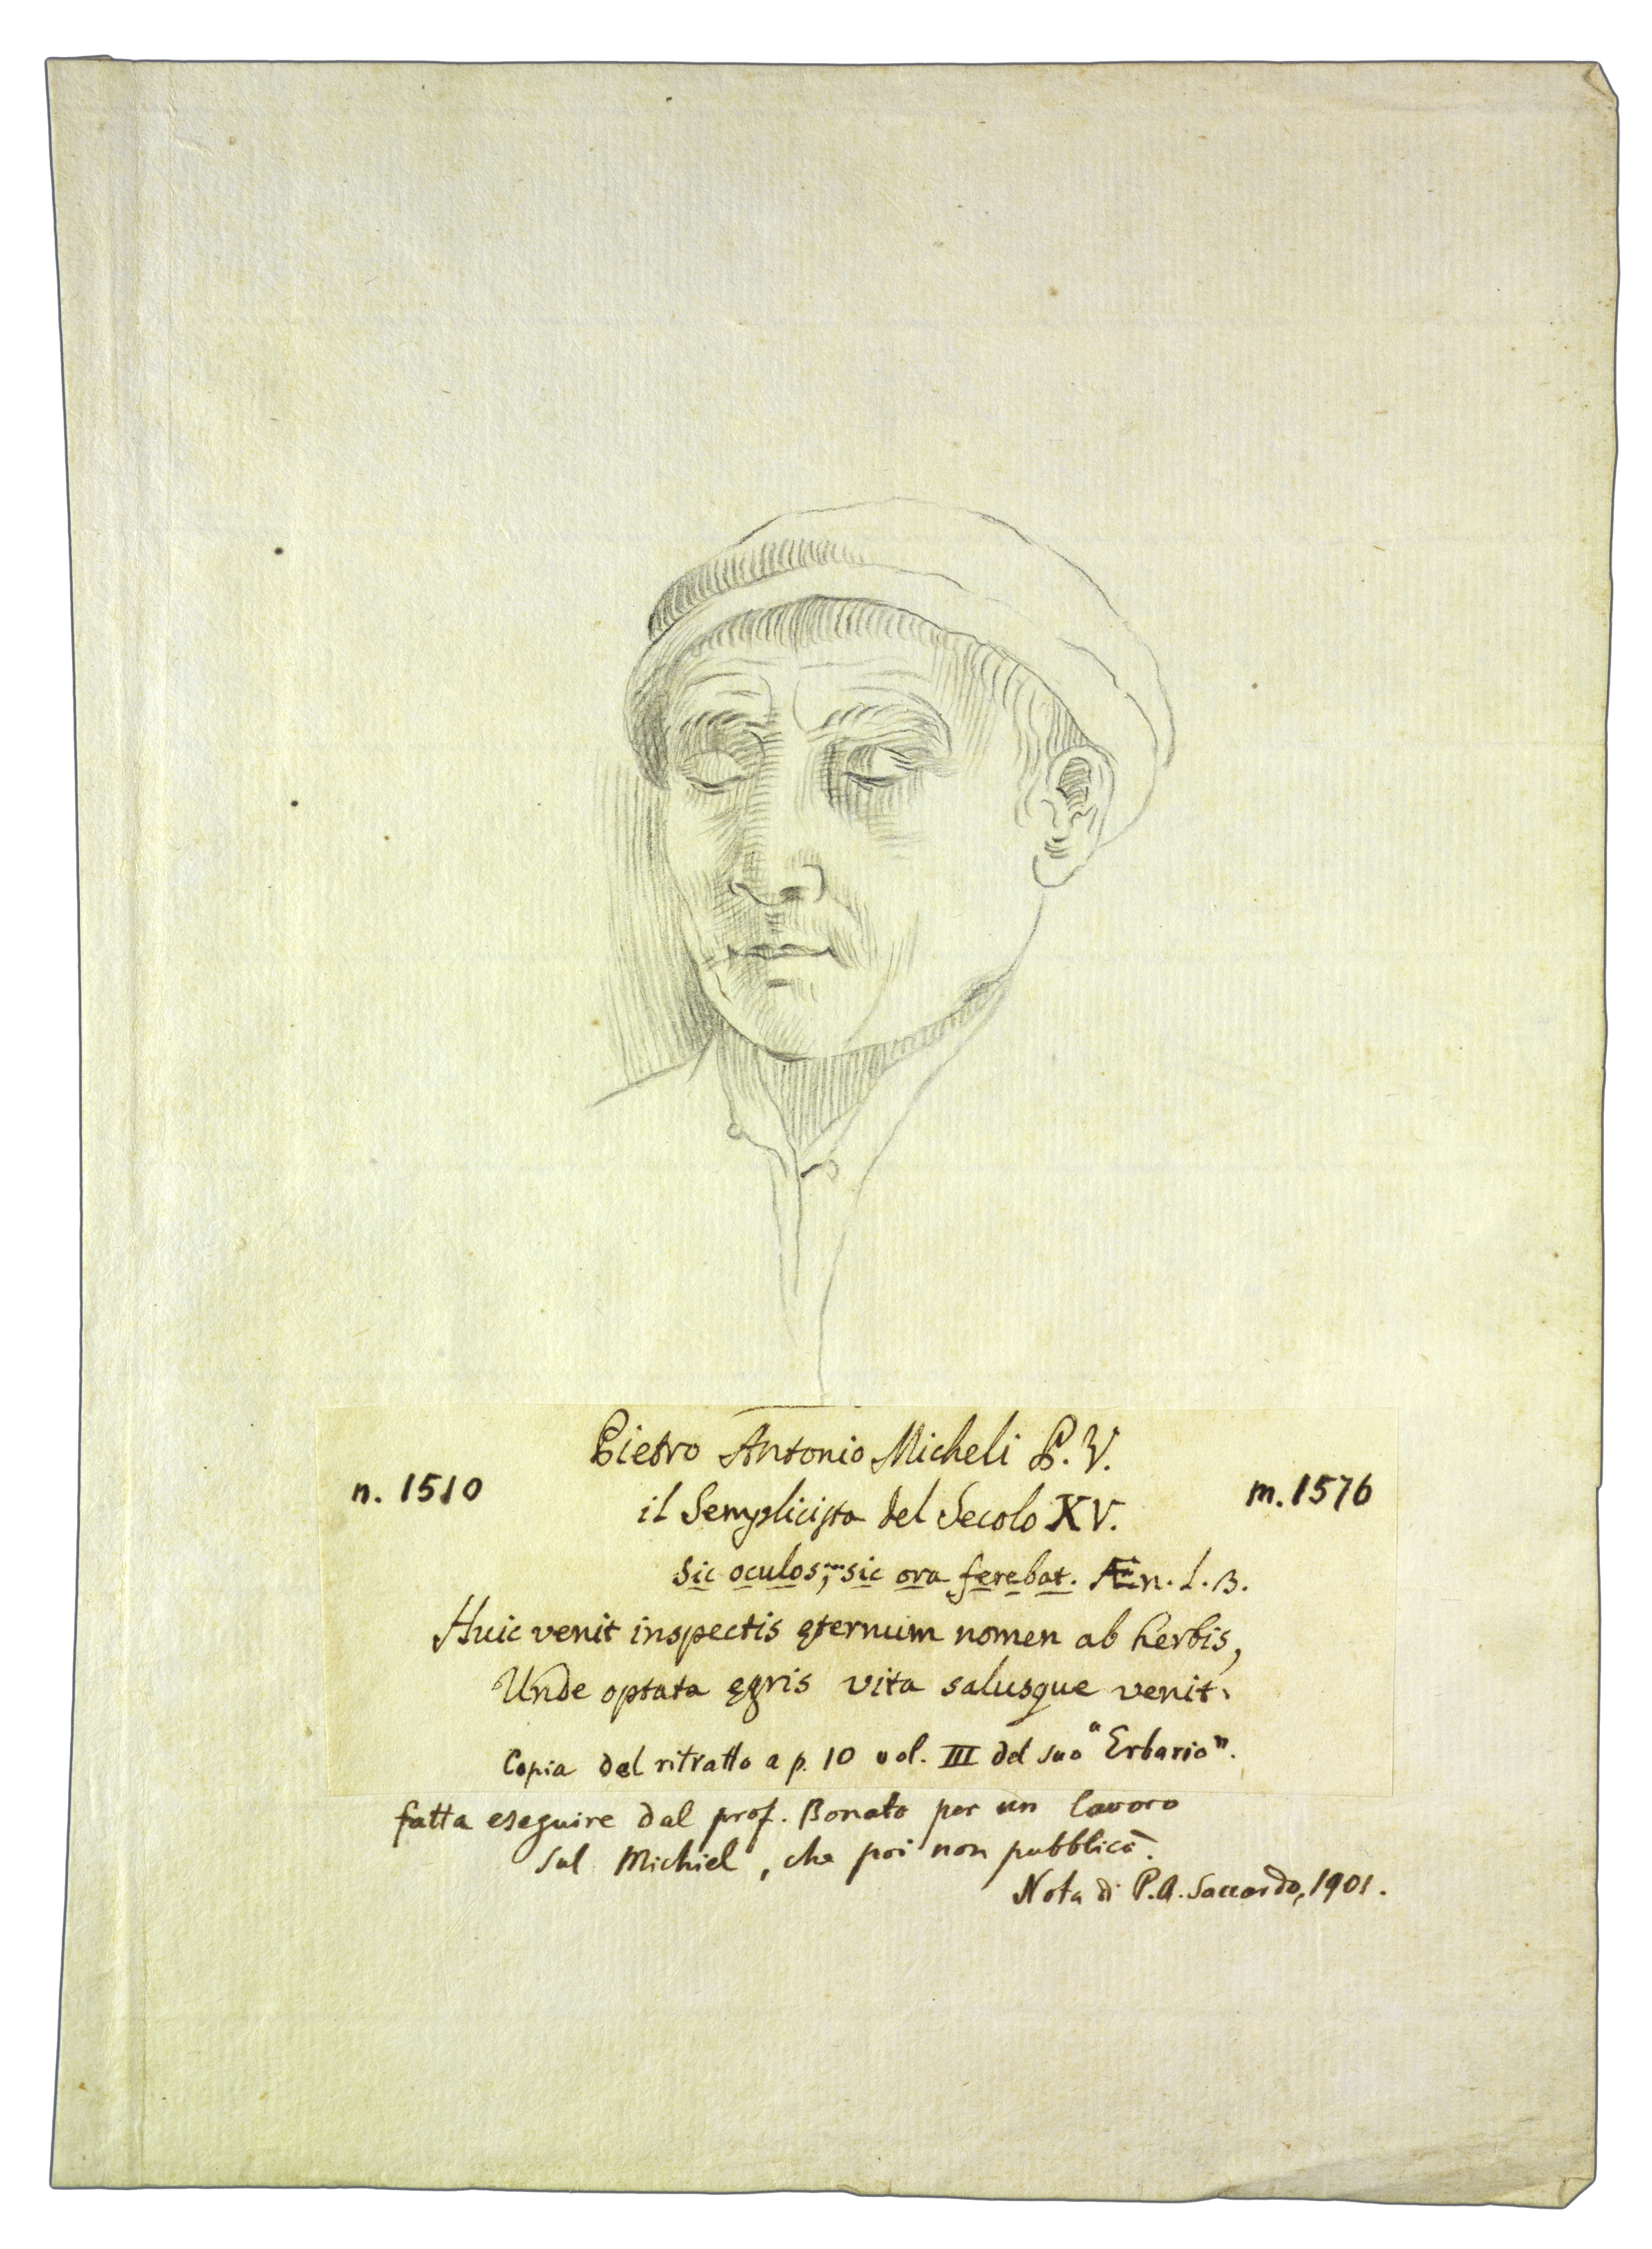 Pietro Antonio Micheli P. V.
n. 1510
m. 1576
il Semplicista del Secolo XV.
Sic oculos, sic ora ferebat. Æn. L. 3.
Huic venit inspectis ęternum nomen ab herbis,
Unde optata ęgris vita salusque venit.
Copia del ritratto a p. 10 vol. III del suo "Erbario".
fatta eseguire dal prof. Bonato per un lavoro
sul Michiel, che poi non pubblicò.
Nota di P.A. Saccardo, 1901.